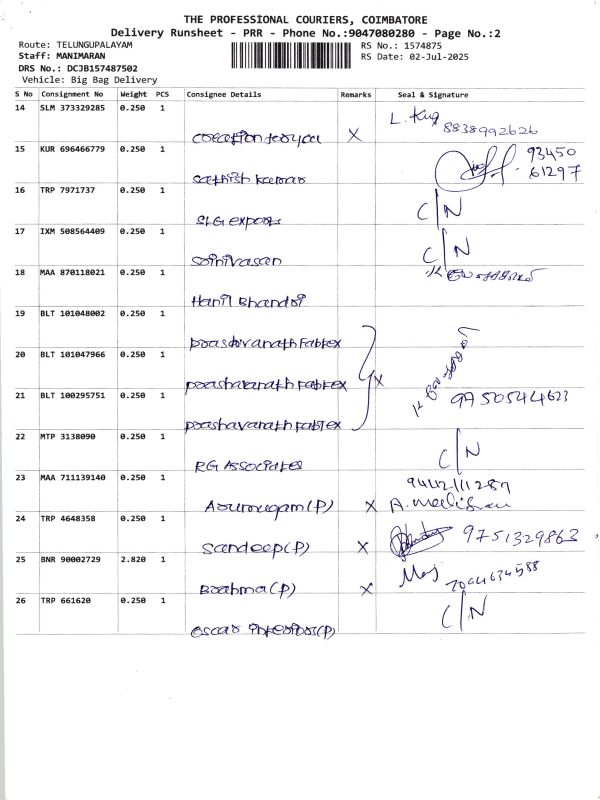 THE PROFESSIONAL COURIERS, COIMBATORE
Delivery Runsheet - PRR - Phone No.:9047080280 - Page No.:2
Route: TELUNGUPALAYAM
RS No.: 1574875
Staff: MANIMARAN
RS Date: 02-Jul-2025
DRS No.: DCJB157487502
Vehicle: Big Bag Delivery
S No Consignment No Weight PCS Consignee Details Remarks Seal & Signature
14 SLM 373329285 0.250 1
X L. 8838992626
15 KUR 696466779 0.250 1
93450
61297
Sathish Kumar
16 TRP 7971737 0.250 1
SLG exports C/N
17 IXM 508564409 0.250 1
Srinivasan C/N
18 MAA 870118021 0.250 1
Hanil Bhandri
19 BLT 101048002 0.250 1
Prashvanath Fabtex
20 BLT 101047966 0.250 1
Prashavanath Fabtex X
21 BLT 100295751 0.250 1
9750544623
Prashavanath Fabtex
22 MTP 3138090 0.250 1
RG Associates C/N
23 MAA 711139140 0.250 1
Arumugam (P) X A.
24 TRP 4648358 0.250 1
Sandeep (P) X 9751329863
25 BNR 90002729 2.820 1
Brahma (P) X
26 TRP 661620 0.250 1
Oscar Interior (P) C/N